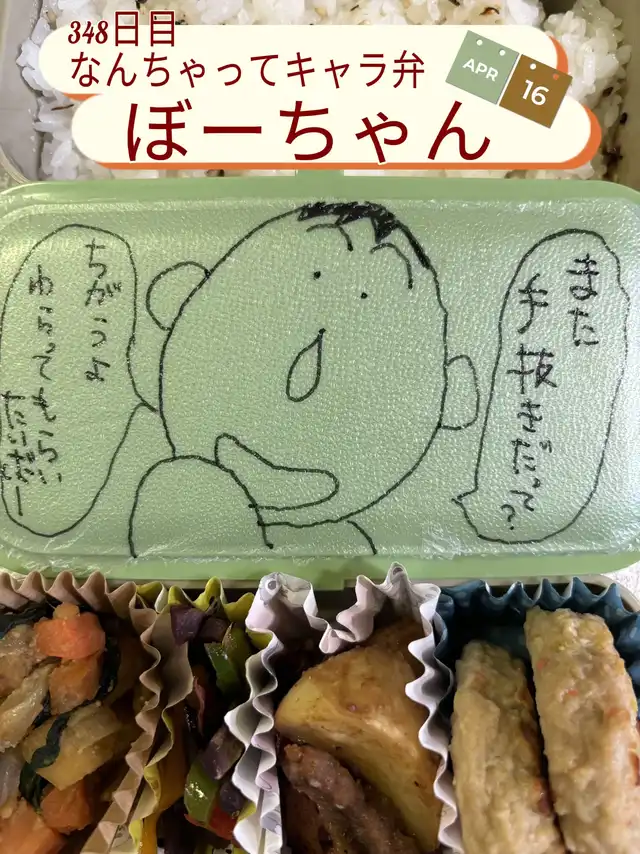 348日目
なんちゃってキャラ弁
APR
16
ぼーちゃん
また
手抜きだって?
ちがうよ
わらってもらい
たいだー